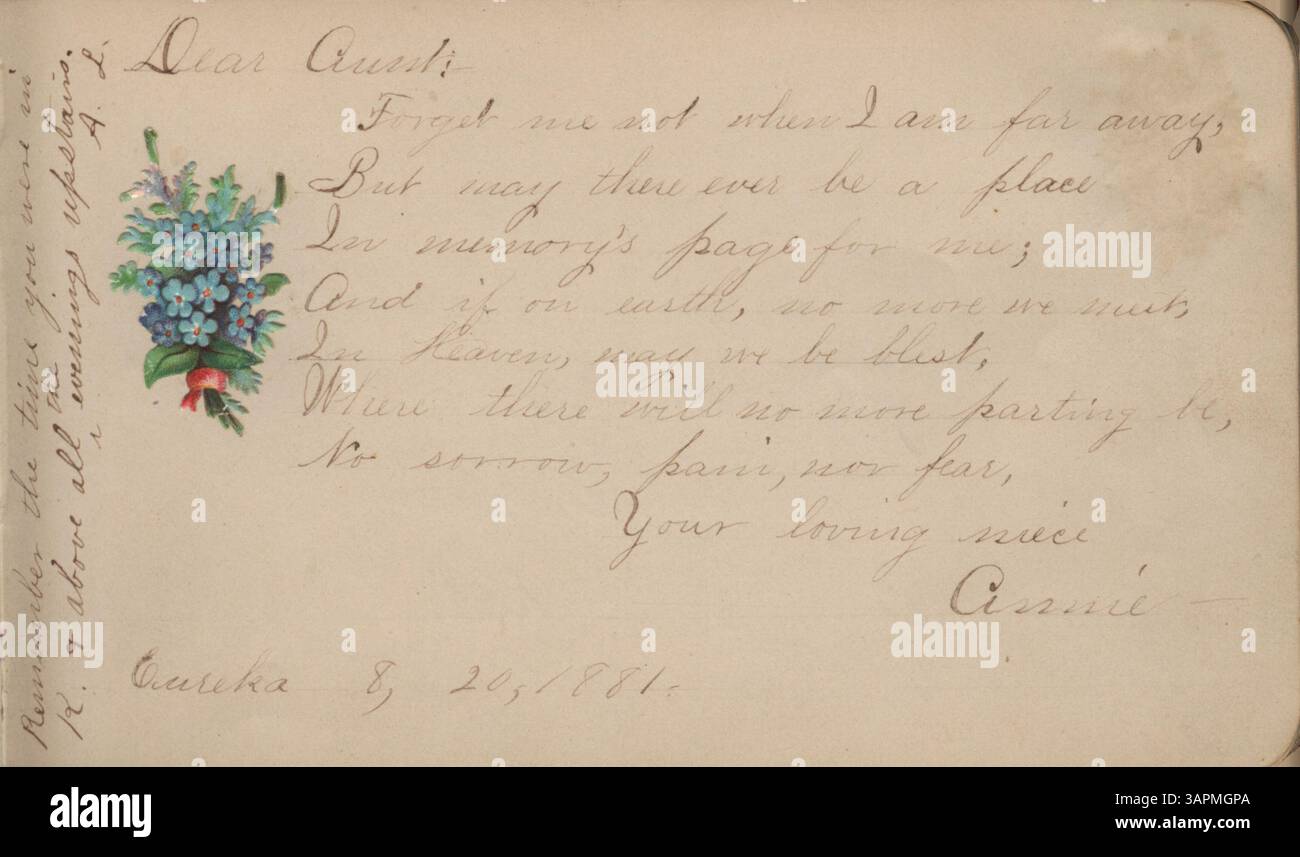 Dear Aunt:
Forget me not when I am far away,
But may there ever be a place
In memory's page for me;
And if on earth, no more we meet,
In Heaven, may we be blest,
Where there will no more parting be,
No sorrow, pain, nor fear,
Your loving niece
Annie
Eureka 8, 20, 1881.
Remember the time you were in
K. & above all the evenings upstairs.
A. L.
alamy
Image ID: 3APMGPA
www.alamy.com